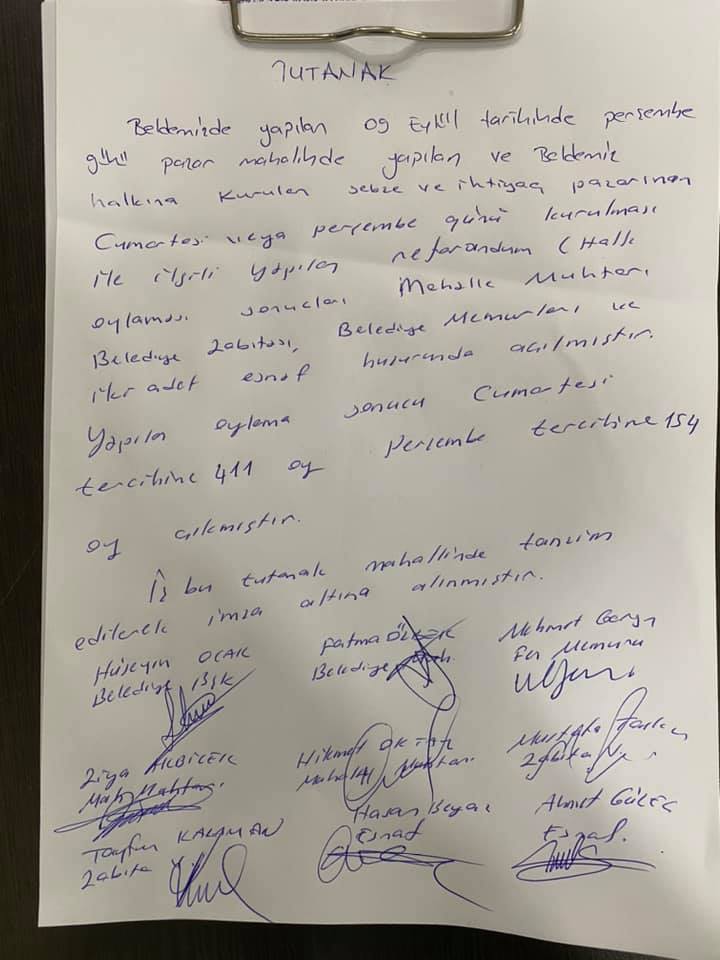 TUTANAK
Beldemizde yapılan 09 Eylül tarihinde perşembe
günü pazar mahalinde yapılan ve Beldemiz
halkına kurulan sebze ve ihtiyaç pazarının
Cumartesi veya perşembe günü kurulması
ile ilgili yapılan referandum (Halk
oylaması sonuçları Mahalle Muhtarı
Belediye Zabıtası, Belediye Memurları ve
iki adet esnaf huzurunda açılmıştır.
Yapılan oylama sonucu Cumartesi
tercihine 411 oy perşembe tercihine 154
oy çıkmıştır.
İş bu tutanak mahallinde tanzim
edilerek imza altına alınmıştır.
Hüseyin OCAK Fatma Mehmet
Belediye Bşk Belediye Fen Memuru
Ziya AKBİLEK Hikmet Mustafa
Mah. Muhtarı Mahalle Muhtarı Zabıta
Tayfun KALAMAN Hasan Ahmet GÜLEÇ
Zabıta Esnaf Esnaf.